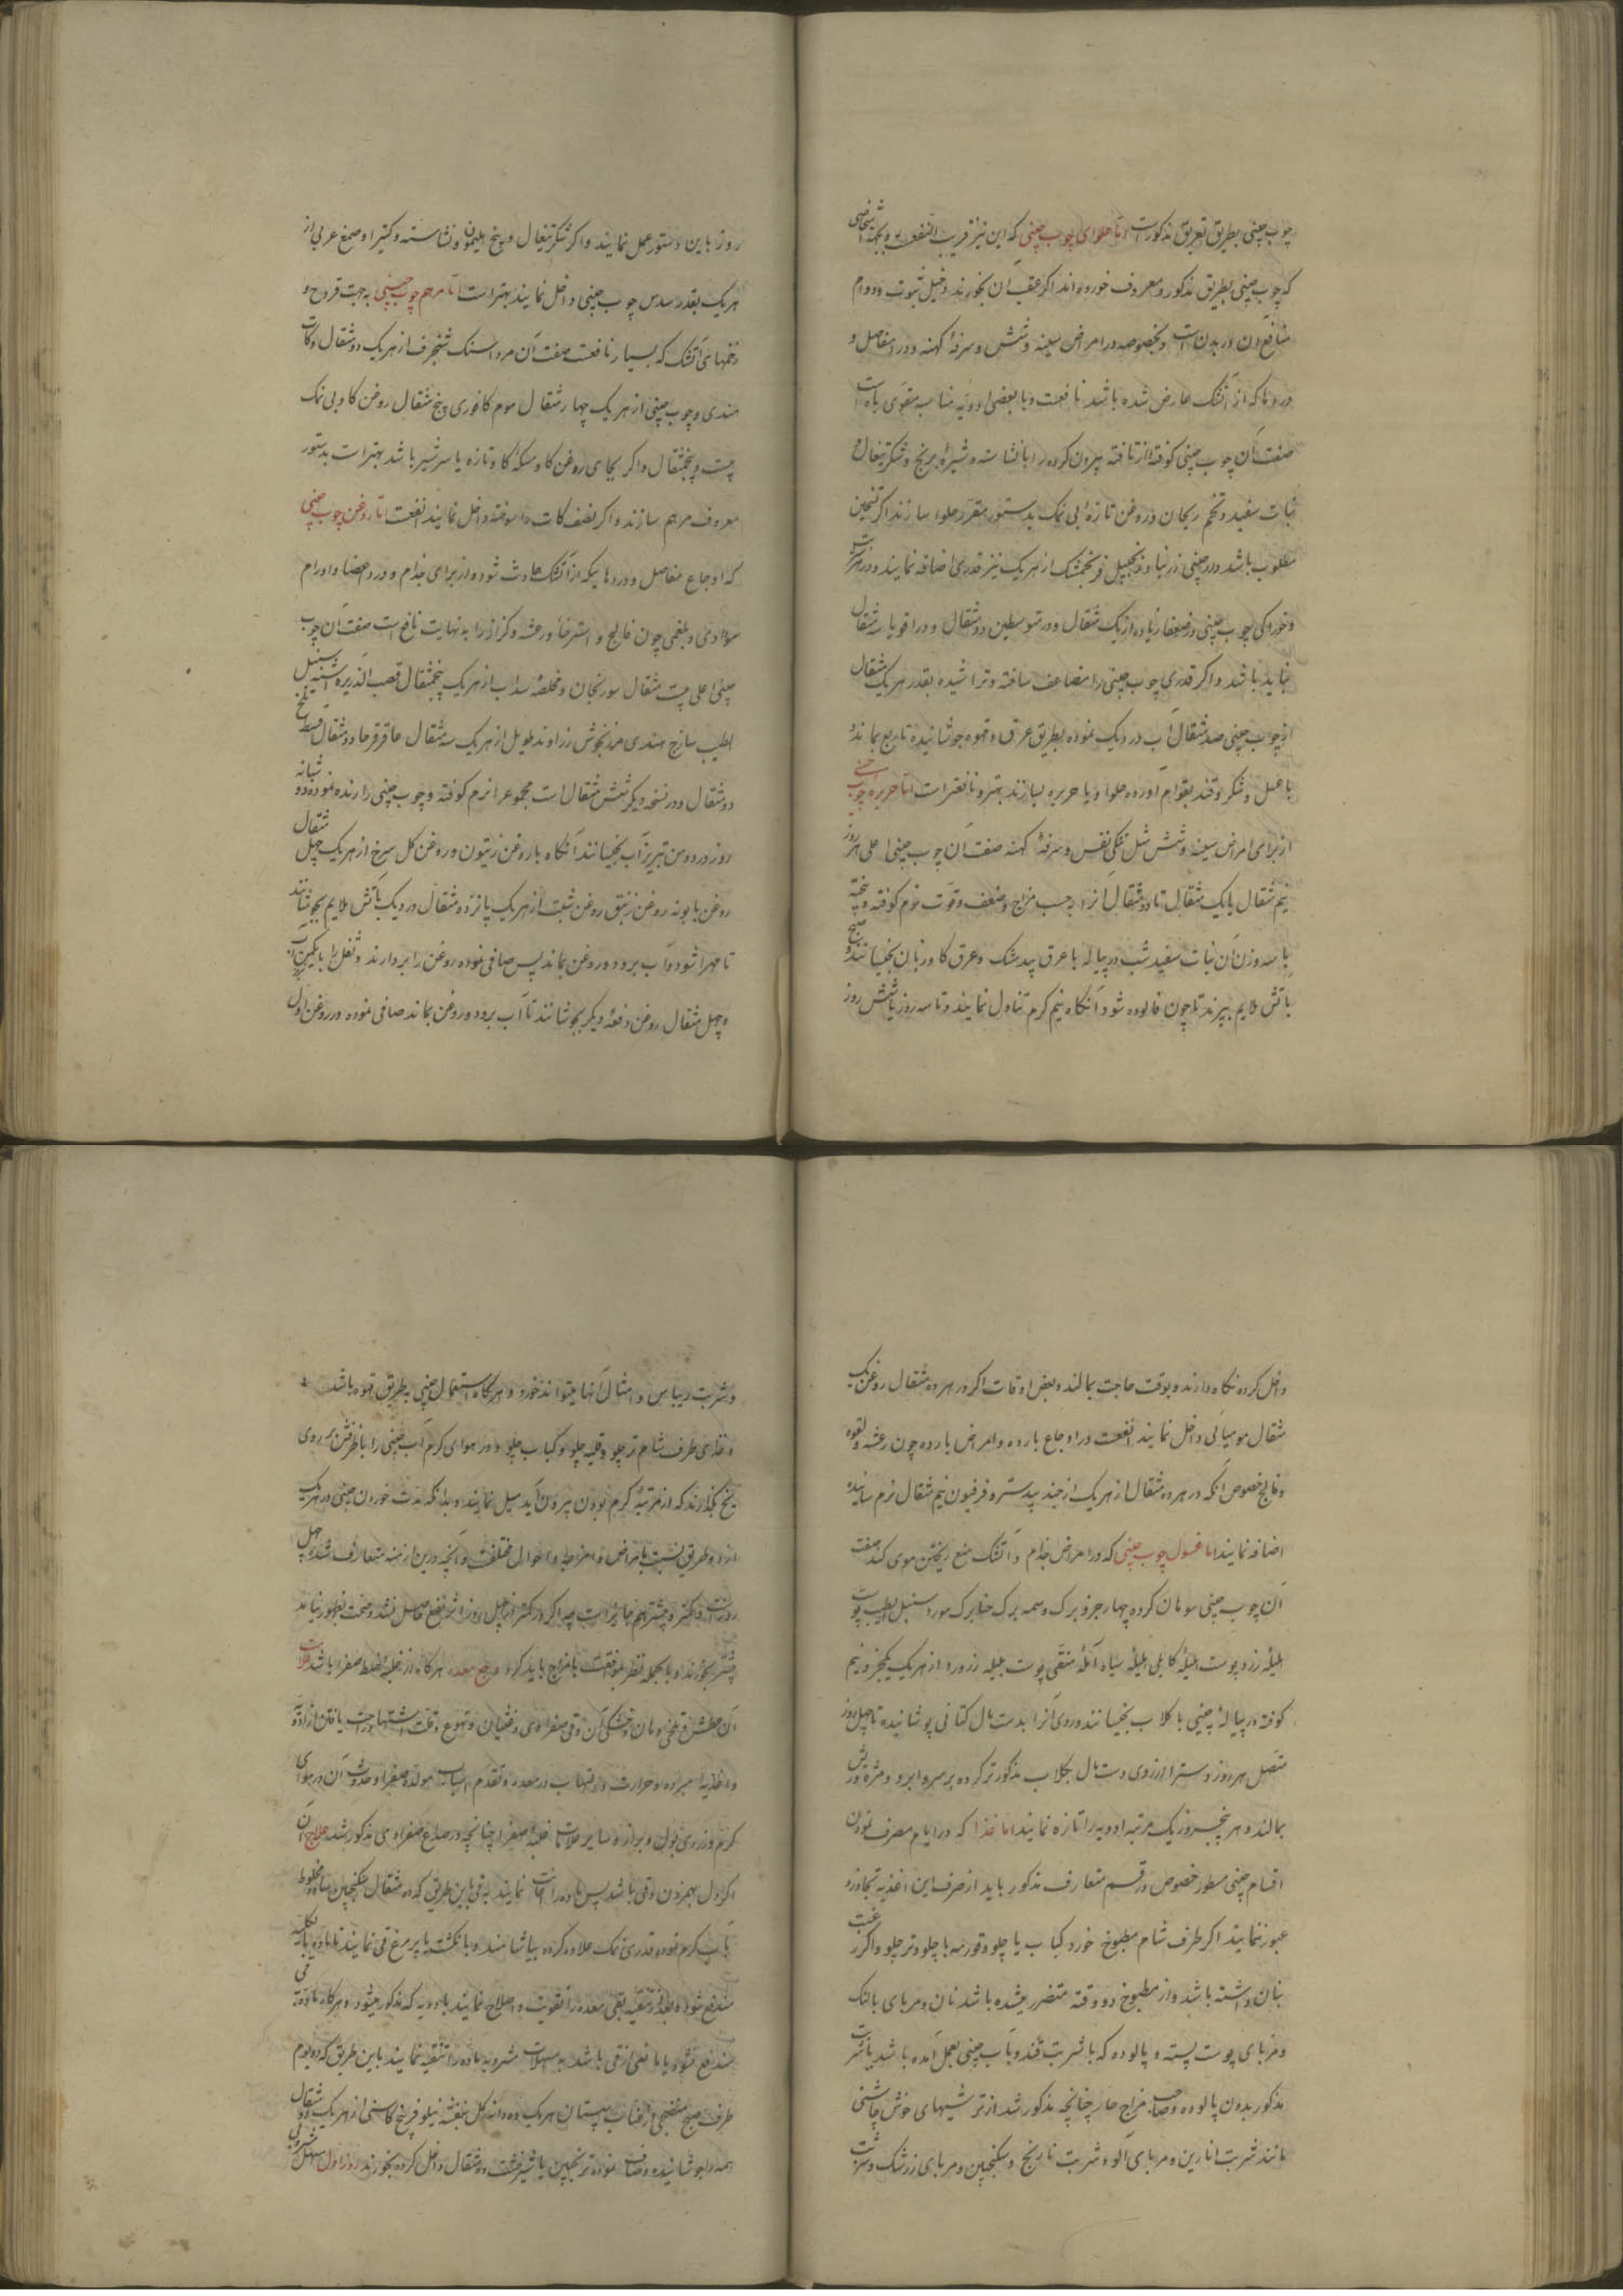 چوب چینی بطریق تعریق مذکور است اما حلوای چوب چینی که این نیز قریب النفعست و بجهة اشخاصی
که چوب چینی بطریق مذکور و معروف خورده‌اند اگر عقب آن بخورند دخیل ثبوت و دوام
منافع آن در بدن است و بخصوصه در امراض سینه و شش و سرفهٔ کهنه و درد مفاصل و
دردها که از آتشک عارض شده باشد نافعست و با بعضی ادویهٔ مناسبه مقوی باه است
صفت آن چوب چینی کوفته از تافته بیرون کرده را با نشاسته و شیرهٔ برنج و شکر تیغال و
نبات سفید و تخم ریحان و روغن تازه بی نمک بدستور مقرر حلوا سازند اگر تسخین
مطلوب باشد دارچینی زرنباد زنجبیل فرنجمشک از هریک نیز قدری اضافه نمایند و در شربت
و خوراکی چوب چینی در ضعفا زیاده از یک مثقال و در متوسطین دو مثقال و در اقویا سه مثقال
نباید باشد و اگر قدری چوب چینی را مضاعف ساخته و تراشیده بقدر هریک مثقال
از چوب چینی صد مثقال آب در دیک نموده بطریق عرق و قهوه جوشانیده تا ربع بماند و
با عسل و شکر و قند بقوام آورده حلوا و یا حریره بسازند بهتر و نافعتر است اما حریره چوب چینی
از برای امراض سینه و شش مثل تنکی نفس و سرفهٔ کهنه صفت آن چوب چینی اعلی هر روز
نیم مثقال یا یک مثقال تا دو مثقال آنرا بحسب مزاج و ضعف و قوت نرم کوفته و بیخته
با سه وزن آن نبات سفید شب در پیاله با عرق بیدمشک و عرق کاوزبان بخیسانند و صبح
باتش ملایم بپزند تا چون فالوده شود آنکاه نیم کرم تناول نمایند و تا سه روز یا شش روز
روز باین دستور عمل نمایند و اگر شکر تیغال و بیخ هلیمون و نشاسته و کتیرا و صمغ عربی از
هریک بقدر سدس چوب چینی داخل نمایند بهتر است اما مرهم چوب چینی بجهت قروح و
زخمهای آتشک که بسیار نافعست صفت آن مرداسنک شنجرف از هریک دو مثقال و کات
هندی و چوب چینی از هریک چهار مثقال موم کافوری پنج مثقال روغن کاو بی نمک
بیست و پنج مثقال و اگر بجای روغن کاو مسکهٔ کاو تازه یا سرشیر باشد بهتر است بدستور
معروف مرهم سازند و اگر نصف کات را سوخته داخل نمایند انفعست اما روغن چوب چینی
که اوجاع مفاصل و دردهائیکه از آتشک حادث شود و از برای جذام و درد اعضا و اورام
سوداوی و بلغمی چون فالج و استرخا و رعشه و کزاز را بنهایت نافع است صفت آن چوب
چینی اعلی بیست مثقال سورنجان و مخلصه سداب از هریک پنجمثقال قصب الذریره اشنه سنبل
الطیب ساذج هندی مرزنجوش زراوند طویل از هریک سه مثقال عاقرقرحا دو مثقال قسط تلخ
دو مثقال و در نسخهٔ دیکر شش مثقال است مجموعرا نرم کوفته و چوب چینی را رنده نموده دو شبانه
روز در دو من تبریز آب بخیسانند آنکاه با روغن زیتون و روغن کل سرخ از هریک چهل مثقال
روغن بابونه روغن زنبق روغن شبت از هریک پانزده مثقال در دیک باتش ملایم بجوشانند
تا مهرا شود و آب برود و روغن بماند پس صافی نموده روغن را بردارند و ثفل را با یکمن آب
و چهل مثقال روغن دفعهٔ دیکر بجوشانند تا آب برود و روغن بماند صافی نموده در روغن اول
داخل کرده نکاه دارند و بوقت حاجت بمالند و بعض اوقات اگر در هر ده مثقال روغن یک
مثقال مومیائی داخل نمایند انفعست در اوجاع بارده و امراض بارده چون رعشه و لقوه
و فالج خصوص آنکه در هر ده مثقال از هریک از جندبیدستر و فرفیون نیم مثقال نرم سائیده
اضافه نمایند اما غسول چوب چینی که در امراض جذام و آتشک منع ریختن موی کند صفت
آن چوب چینی سوهان کرده چهار جزو برک وسمه برک حنا برک مورد سنبل الطیب پوست
هلیلهٔ زرد پوست هلیلهٔ کابلی هلیلهٔ سیاه آملهٔ منقی پوست بلیله زرورد از هریک یکجزو نیم
کوفته در پیالهٔ چینی با کلاب بخیسانند و روی آنرا بدستمال کتانی پوشانیده تا چهل روز
متصل هر روز دستر از روی دستمال بکلاب مذکور تر کرده بر سر و ابرو و مژه و ریش
بمالند و هر پنجروز یک مرتبه ادویه را تازه نمایند اما غذا که در ایام مصرف نمودن
اقسام چینی مسطور خصوص در قسم متعارف مذکور باید از صرف این اغذیه تجاوز و
عبور ننمایند اگر طرف شام مطبوخ خورد کباب یا چلو و قورمه با چلو و تر چلو و اگر رغبت
بنان داشته باشد و از مطبوخ دو وقته متضرر میشده باشد نان و مربای بالنک
و مربای پوست پسته و پالوده که با شربت قند و باب چینی بعمل آمده باشد یا شربت
مذکور بدون پالوده و صاحب مزاج حار چنانچه مذکور شد از ترشیهای خوش چاشنی
مانند شربت انارین و مربای آلو و شربت نارنج و سکنجبین و مربای زرشک و شربت
و شربت ریباس و امثال آنها میتواند خورد و هرکاه استعمال چینی بطریق قهوه باشد
و غذای طرف شام تر چلو و قلیه چلو و کباب چلو و در هوای کرم آب چینی را با ظرفش بر روی
یخ بکذارند که از مرتبهٔ کرم بودن بیرون آید میل نمایند و بدانکه مدت خوردن چینی در هریک
از دو طریق نسبت بامراض و امزجه و احوال مختلفست و آنچه درین ازمنه متعارف شده چهل
روز است و کمتر و بیشتر هم جایز است چه اگر در کمتر از چهل روز اثر نفع حاصل نشد و صحت بظهور نیامد
بیشتر بخورند و بالجمله نظر بموافقت با مزاج باید کرد وجع معده هرکاه از غلبهٔ خلط صفرا باشد علامت
آن عطش و تلخی دهان و خشکی آن و قی صفراوی و غثیان و تهوع و قلت اشتها و راحت یافتن از ادویه
و اغذیهٔ مبرده و حرارت و التهاب در معده و تقدم اسباب مولدهٔ صفرا و حدوث آن در هوای
کرم و زردی بول و براز و سایر علامات غلبهٔ صفرا چنانچه در صداع صفراوی مذکور شد علاج آن
اگر دل بهمزدن و قی باشد پس ماده را اعانت نمایند بقی باین طریق که ده مثقال سکنجبین ساده مخلوط
بآب کرم نموده قدری نمک علاوه کرده بیاشامند و بانکشت یا پر مرغ قی نمایند تا ماده بالکلیه
مندفع شود و بعد از تنقیه بقی معده را تقویت و اصلاح نمایند بادویه که مذکور میشود و هرکاه ماده بقی
مندفع نشود یا مانعی از قی باشد به مسهلات مشروبه ماده را تنقیه نمایند باین طریق که دو یوم
طرف صبح منضجی از عناب سپستان هریک ده دانه کل بنفشه نیلوفر بیخ کاسنی از هریک دو مثقال
همه را جوشانیده و صاف نموده ترنجبین یا شیرخشت ده مثقال داخل کرده بخورند روز اول مسهل